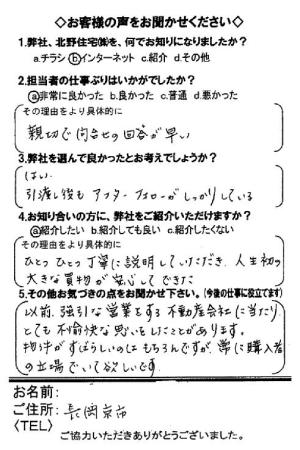 ◇お客様の声をお聞かせください◇
1.弊社、北野住宅㈱を、何でお知りになりましたか?
a.チラシ ⓑインターネット c.紹介 d.その他
2.担当者の仕事ぶりはいかがでしたか?
ⓐ非常に良かった b.良かった c.普通 d.悪かった
その理由をより具体的に
親切で問合せの回答が早い
3.弊社を選んで良かったとお考えでしょうか?
はい.
引渡し後も アフターフォローが しっかりしている
4.お知り合いの方に、弊社をご紹介いただけますか?
ⓐ紹介したい b.紹介しても良い c.紹介したくない
その理由をより具体的に
ひとつ ひとつ 丁寧に 説明していただき、人生初の
大きな買物が 安心してできた
5.その他お気づきの点をお聞かせ下さい。(今後の仕事に役立てます)
以前、強引な営業をする 不動産会社に当たり
とても 不愉快な思いをしたことがあります。
物件がすばらしいのは もちろんですが 常に購入者
の立場でいて欲しいです
お名前:
ご住所: 長岡京市
〈TEL〉
ご協力いただきありがとうございました。